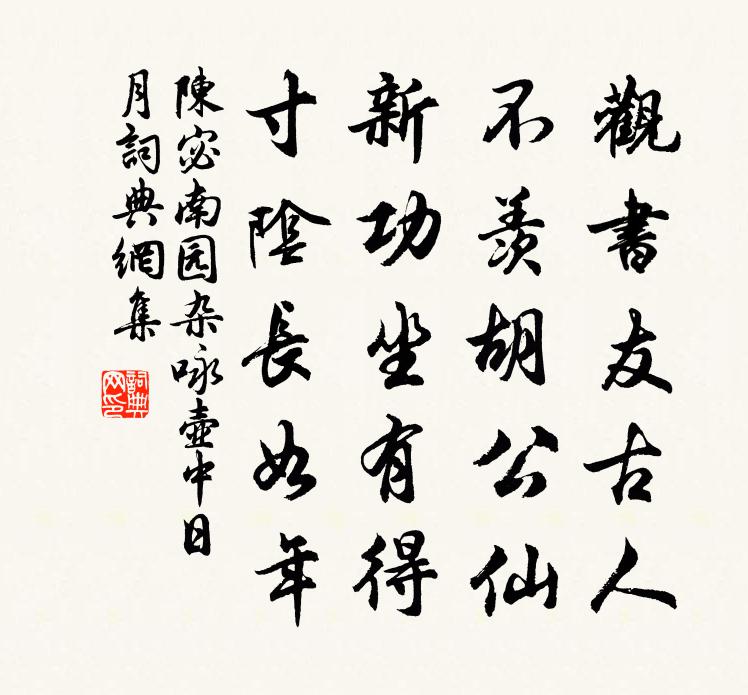 觀書友古人
不羨胡公仙
新功坐有得
寸陰長如年
陳宓南园杂咏壺中日
月詞典網集
詞典网印